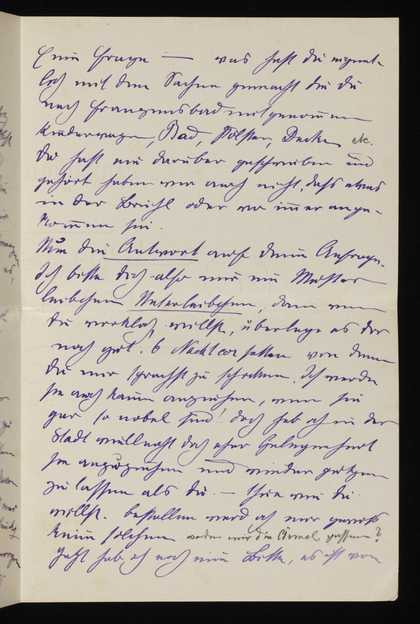 Eine Frage — was hast du eigent-
lich mit den Sachen gemacht die du
nach Franzensbad mitgenommen
Kinderwagen, Bad, Polster, Decken etc.
Du hast nie darüber geschrieben und
gehört haben wir auch nicht, daß etwas
in der Brühl oder wo immer ange-
kommen sei.
Nun die Antwort auf deine Anfrage.
Ich bitte dich also mir ein Muster
Unterleibchen, denn wenn
du wirklich willst, überlege es dir
noch gut. 6 Nachtcorsetten von denen
du mir sprachst zu schicken. Ich werde
sie auch kaum anziehen, wenn sie
gar so nobel sind! doch hab ich in der
Stadt vielleicht doch eher Gelegenheit
sie anzuziehen und wieder putzen
zu lassen als du. — Thue wie du
willst. bestellen werd ich mir gewiß
keine solchen werden mir die Ärmel passen?
Jetzt hab ich noch eine Bitte, es ist von